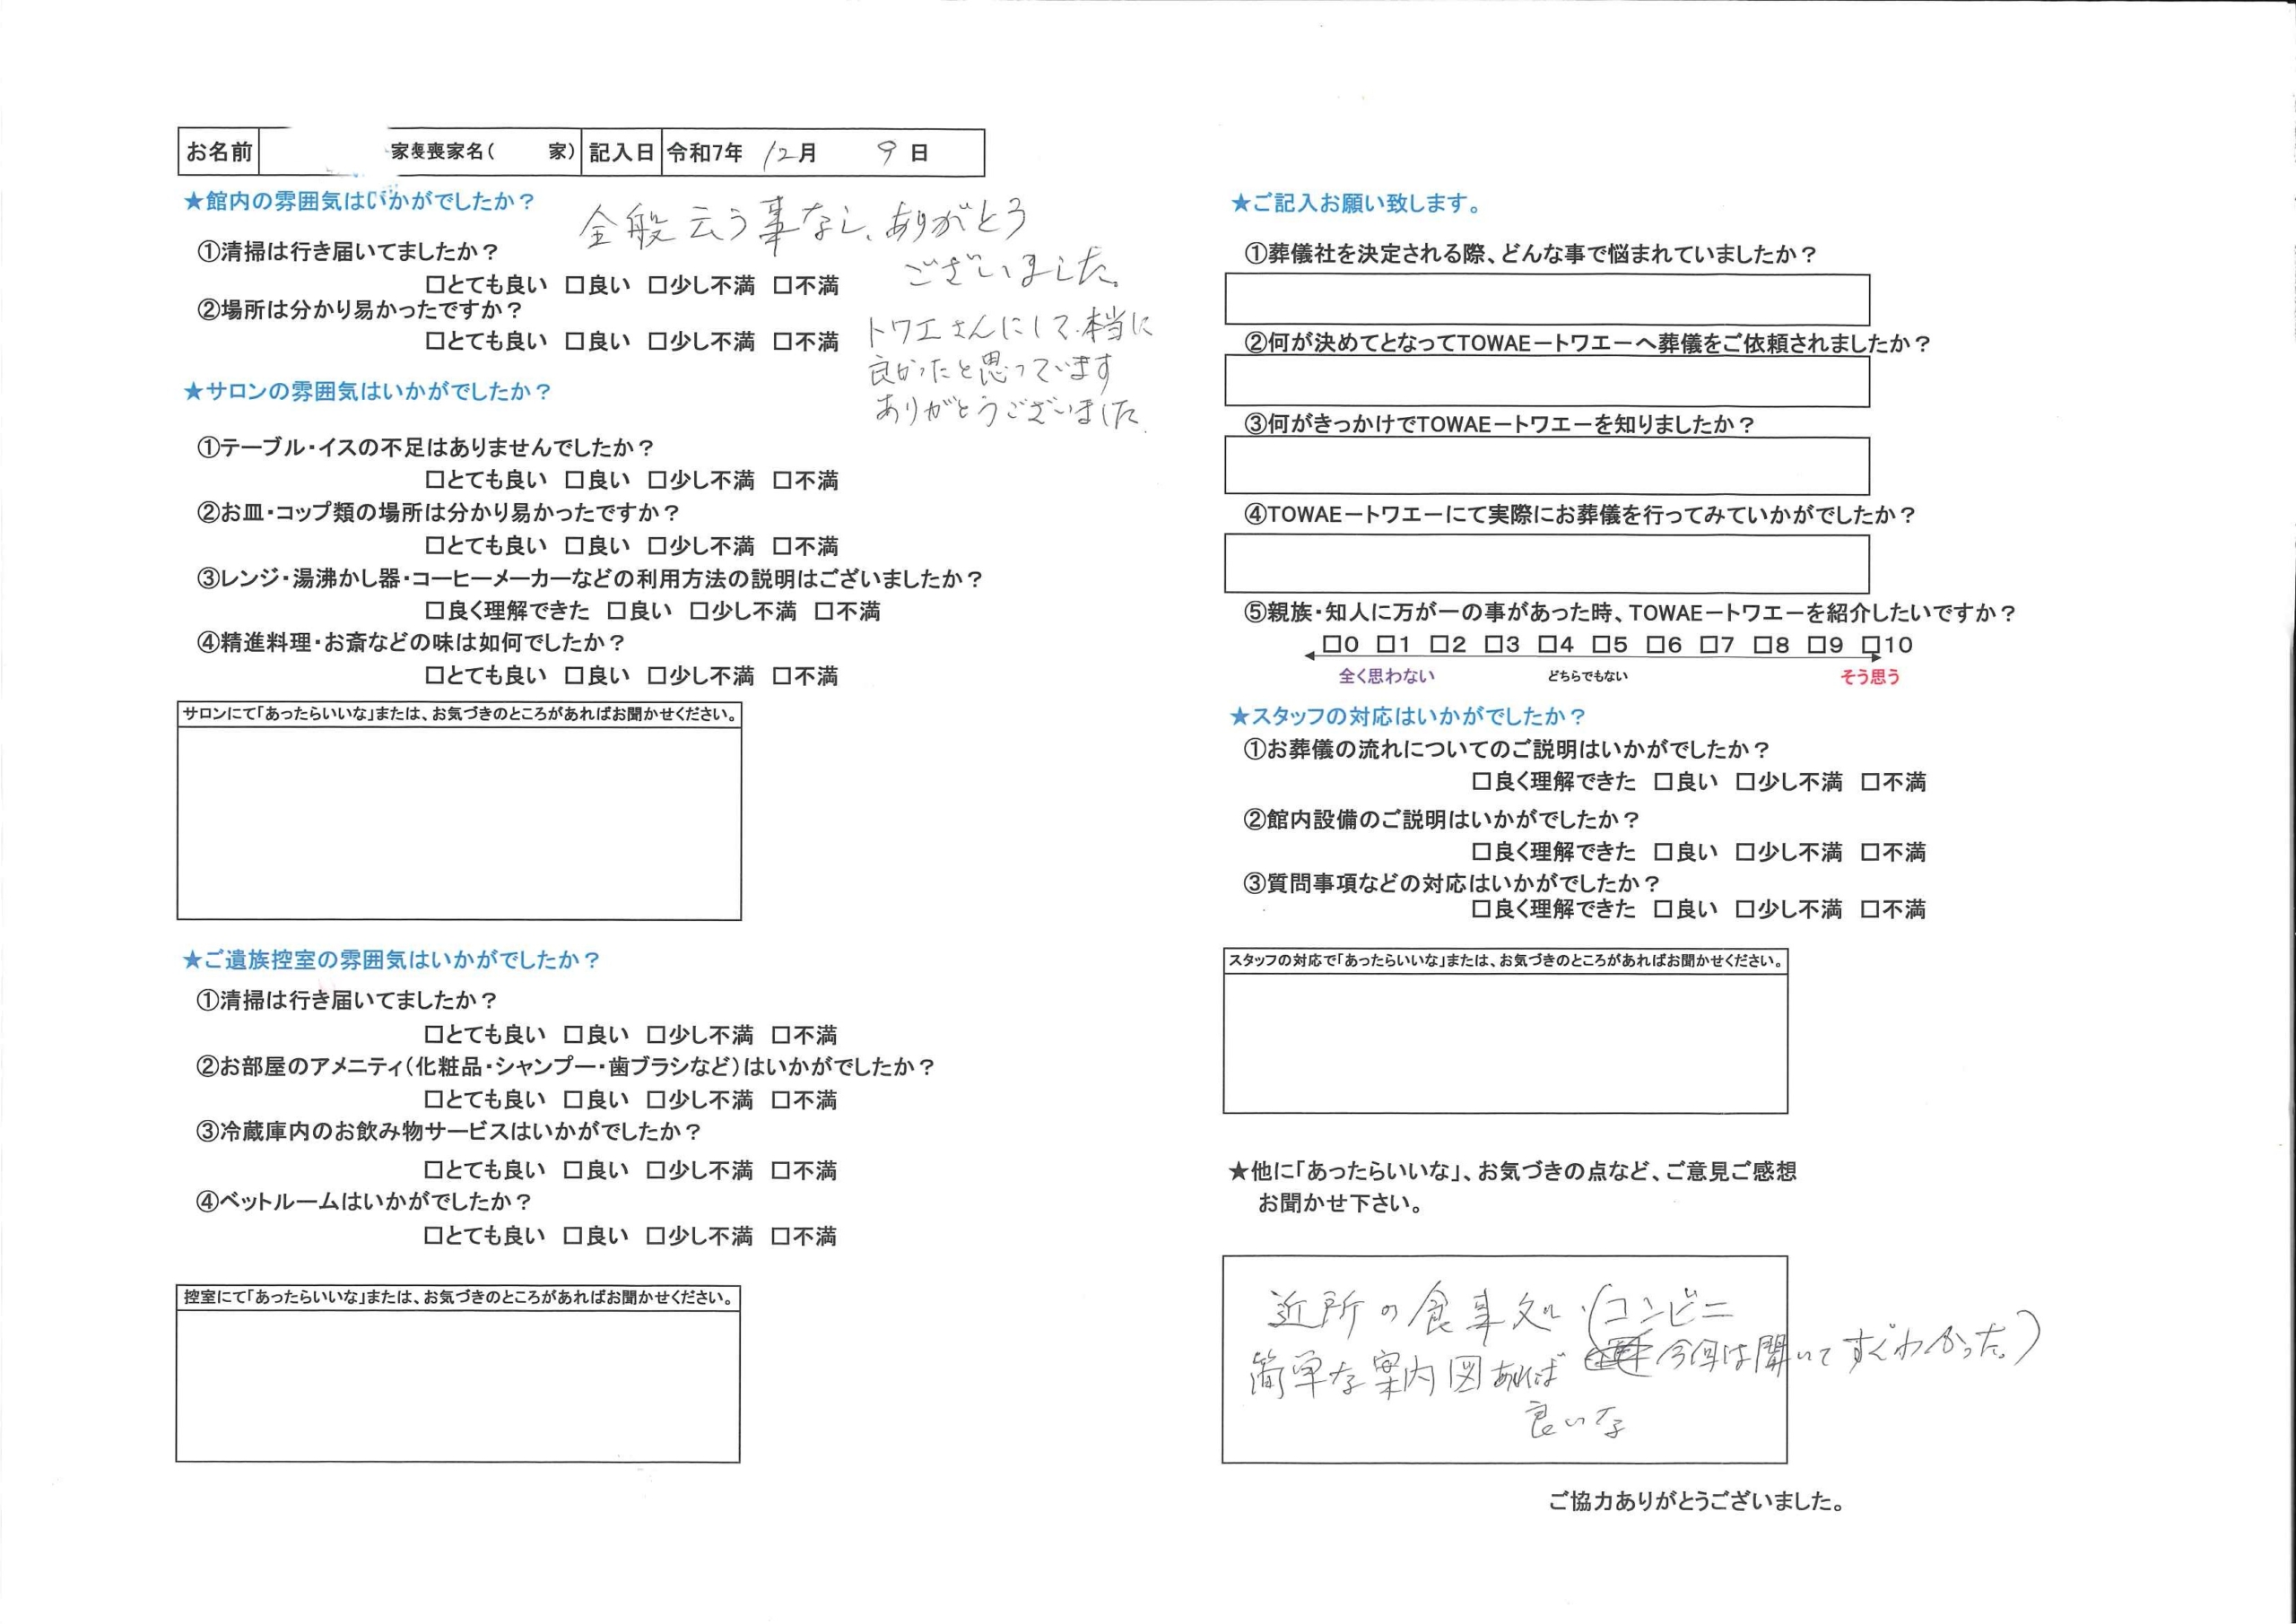 お名前 家喪家名( 家) 記入日 令和7年 12月 9日
★館内の雰囲気はいかがでしたか？
全般云う事なし、ありがとう
ございました。
①清掃は行き届いてましたか？
□とても良い □良い □少し不満 □不満
②場所は分かり易かったですか？
□とても良い □良い □少し不満 □不満
トワエさんにして本当に
良かったと思っています
ありがとうございました.
★サロンの雰囲気はいかがでしたか？
①テーブル・イスの不足はありませんでしたか？
□とても良い □良い □少し不満 □不満
②お皿・コップ類の場所は分かり易かったですか？
□とても良い □良い □少し不満 □不満
③レンジ・湯沸かし器・コーヒーメーカーなどの利用方法の説明はございましたか？
□良く理解できた □良い □少し不満 □不満
④精進料理・お斎などの味は如何でしたか？
□とても良い □良い □少し不満 □不満
サロンにて「あったらいいな」または、お気づきのところがあればお聞かせください。
★ご遺族控室の雰囲気はいかがでしたか？
①清掃は行き届いてましたか？
□とても良い □良い □少し不満 □不満
②お部屋のアメニティ(化粧品・シャンプー・歯ブラシなど)はいかがでしたか？
□とても良い □良い □少し不満 □不満
③冷蔵庫内のお飲み物サービスはいかがでしたか？
□とても良い □良い □少し不満 □不満
④ベットルームはいかがでしたか？
□とても良い □良い □少し不満 □不満
控室にて「あったらいいな」または、お気づきのところがあればお聞かせください。
★ご記入お願い致します。
①葬儀社を決定される際、どんな事で悩まれていましたか？
②何が決めてとなってTOWAEートワエーへ葬儀をご依頼されましたか？
③何がきっかけでTOWAEートワエーを知りましたか？
④TOWAEートワエーにて実際にお葬儀を行ってみていかがでしたか？
⑤親族・知人に万が一の事があった時、TOWAEートワエーを紹介したいですか？
□0 □1 □2 □3 □4 □5 □6 □7 □8 □9 □10
全く思わない どちらでもない そう思う
★スタッフの対応はいかがでしたか？
①お葬儀の流れについてのご説明はいかがでしたか？
□良く理解できた □良い □少し不満 □不満
②館内設備のご説明はいかがでしたか？
□良く理解できた □良い □少し不満 □不満
③質問事項などの対応はいかがでしたか？
□良く理解できた □良い □少し不満 □不満
スタッフの対応で「あったらいいな」または、お気づきのところがあればお聞かせください。
★他に「あったらいいな」、お気づきの点など、ご意見ご感想
お聞かせ下さい。
近所の食事処、(コンビニ
今回は聞いてすぐわかった。)
簡単な案内図あれば
良いな
ご協力ありがとうございました。